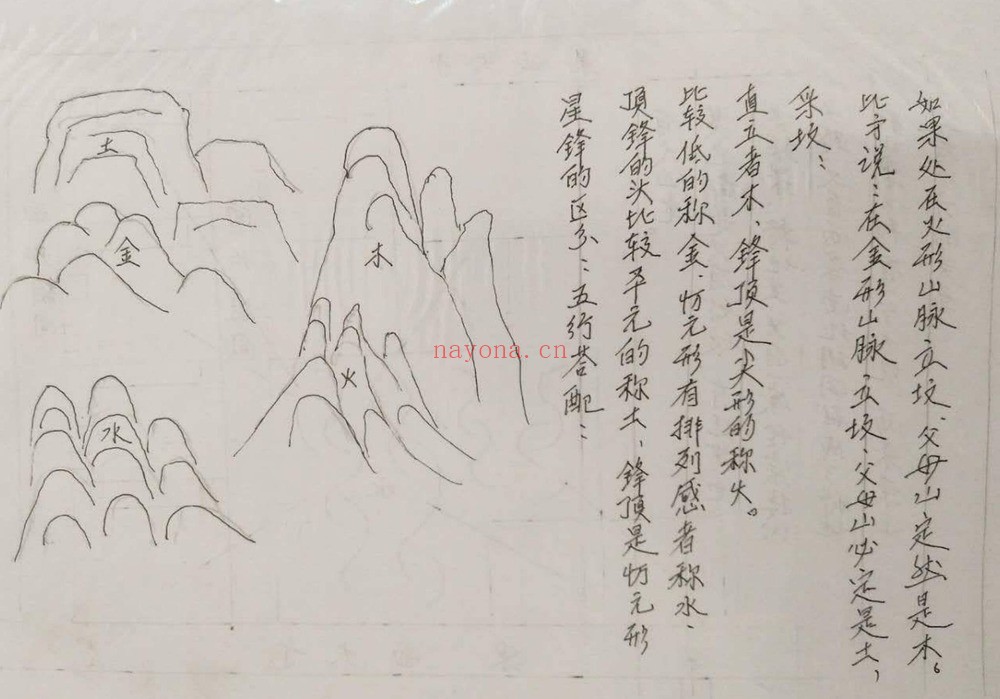 星鋒的区分：五行荅配：
頂鋒的头比较平元的称土、鋒顶是元形
比较低的称金、元形有排列感者称水、
直立者木、鋒顶是尖形的称火。
采坟：
比方说：在金形山脉立坟、父母山必定是土，
如果处在火形山脉立坟、父母山定然是木。
土
金
木
火
水
nayona.cn